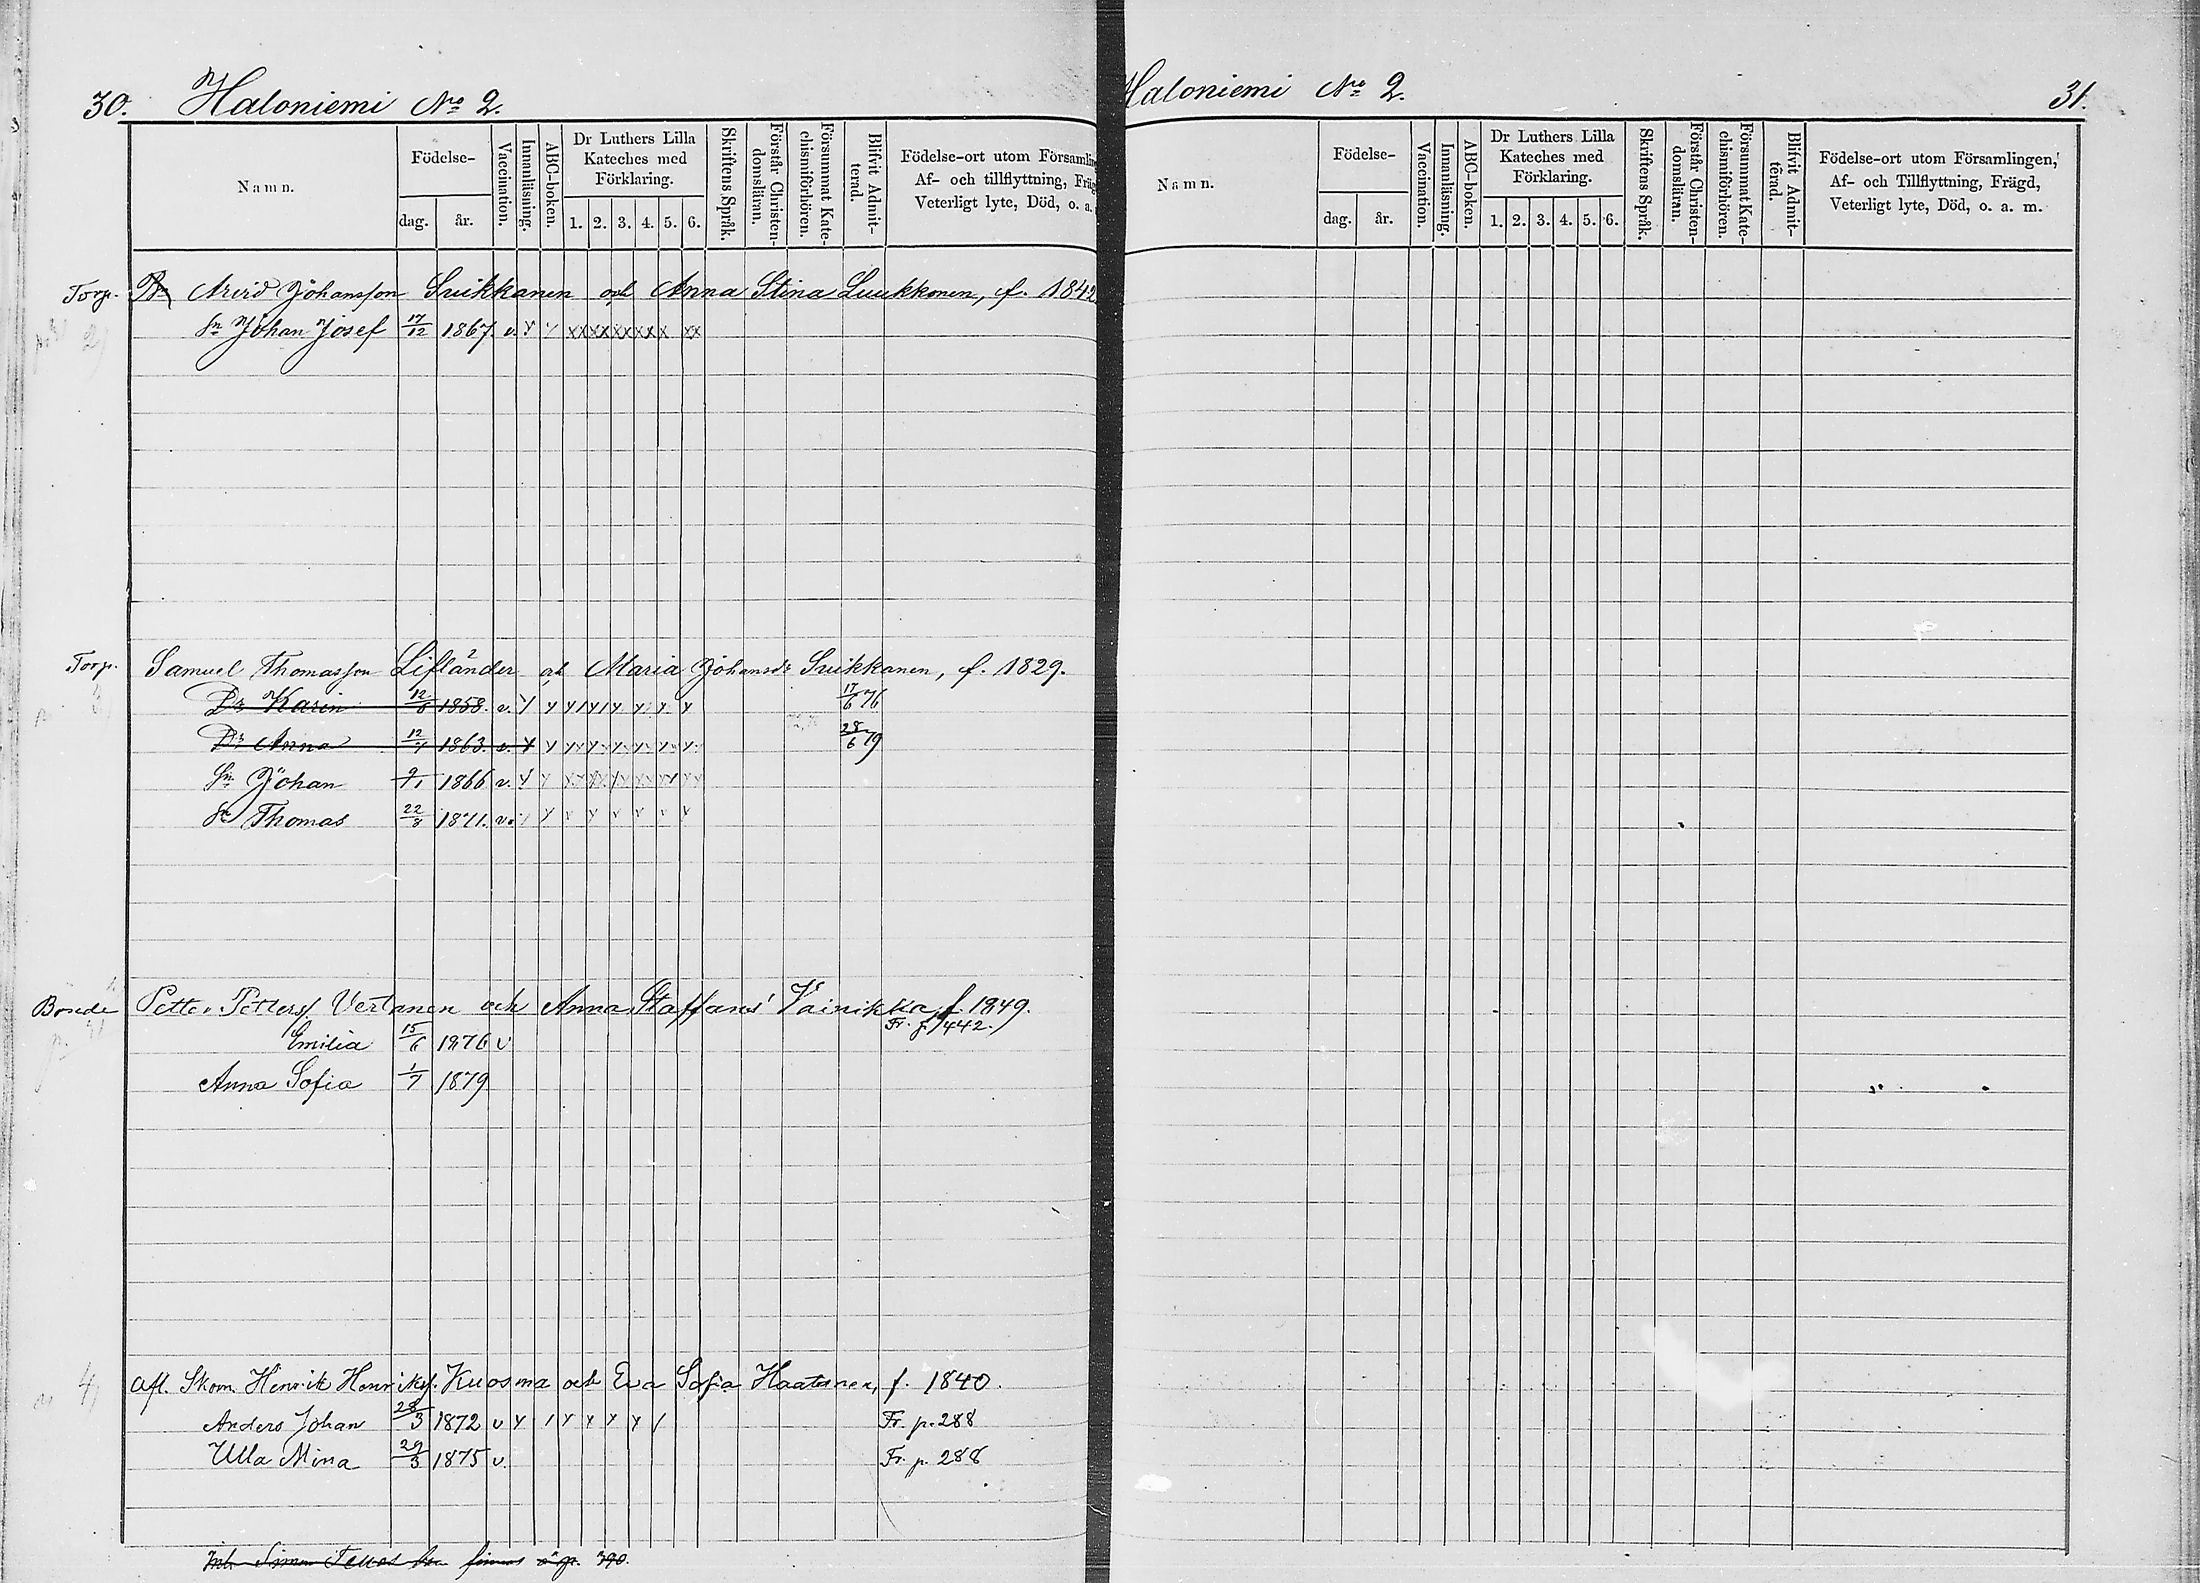 30. Haloniemi No 2.
Namn.
Födelse-
dag. år.
Vaccination.
Innanläsning.
ABC-boken.
Dr Luthers Lilla
Kateches med
Förklaring.
1. 2. 3. 4. 5. 6.
Skriftens Språk.
Förstår Christen-
domsläran.
Försummat Kate-
chismiförhören.
Blifvit Admit-
terad.
Födelse-ort utom Församling
Af- och tillflyttning, Fräg
Veterligt lyte, Död, o. a.
Torp. Arvid Johansson Suikkanen och Anna Stina Luukkonen, f. 1842
Sn Johan Josef 17/12 1867. v.
Torp. Samuel Thomasson Lifländer och Maria Johansdr Suikkanen, f. 1829.
Dr Karin 12/8 1858. v. 17/6 76
Dr Anna 12/7 1863. v. 28/6 79
Sn Johan 9/1 1866 v.
Sn Thomas 22/8 1871. v.
Bonde Petter Petterss. Vertanen och Anna Staffans Vainikka f. 1849.
Fr. p. 442.
Emilia 15/6 1876 v
Anna Sofia 1/7 1879
4) Afl. Skom. Henrik Henrikss. Kuosma och Eva Sofia Haatanen, f. 1840.
Anders Johan 28/3 1872 v Fr. p. 288
Ulla Mina 29/3 1875 v. Fr. p. 288
Inh. Simon finnes å p. 390.
Haloniemi No 2. 31.
Namn.
Födelse-
dag. år.
Vaccination.
Innanläsning.
ABC-boken.
Dr Luthers Lilla
Kateches med
Förklaring.
1. 2. 3. 4. 5. 6.
Skriftens Språk.
Förstår Christen-
domsläran.
Försummat Kate-
chismiförhören.
Blifvit Admit-
terad.
Födelse-ort utom Församlingen,
Af- och Tillflyttning, Frägd,
Veterligt lyte, Död, o. a. m.